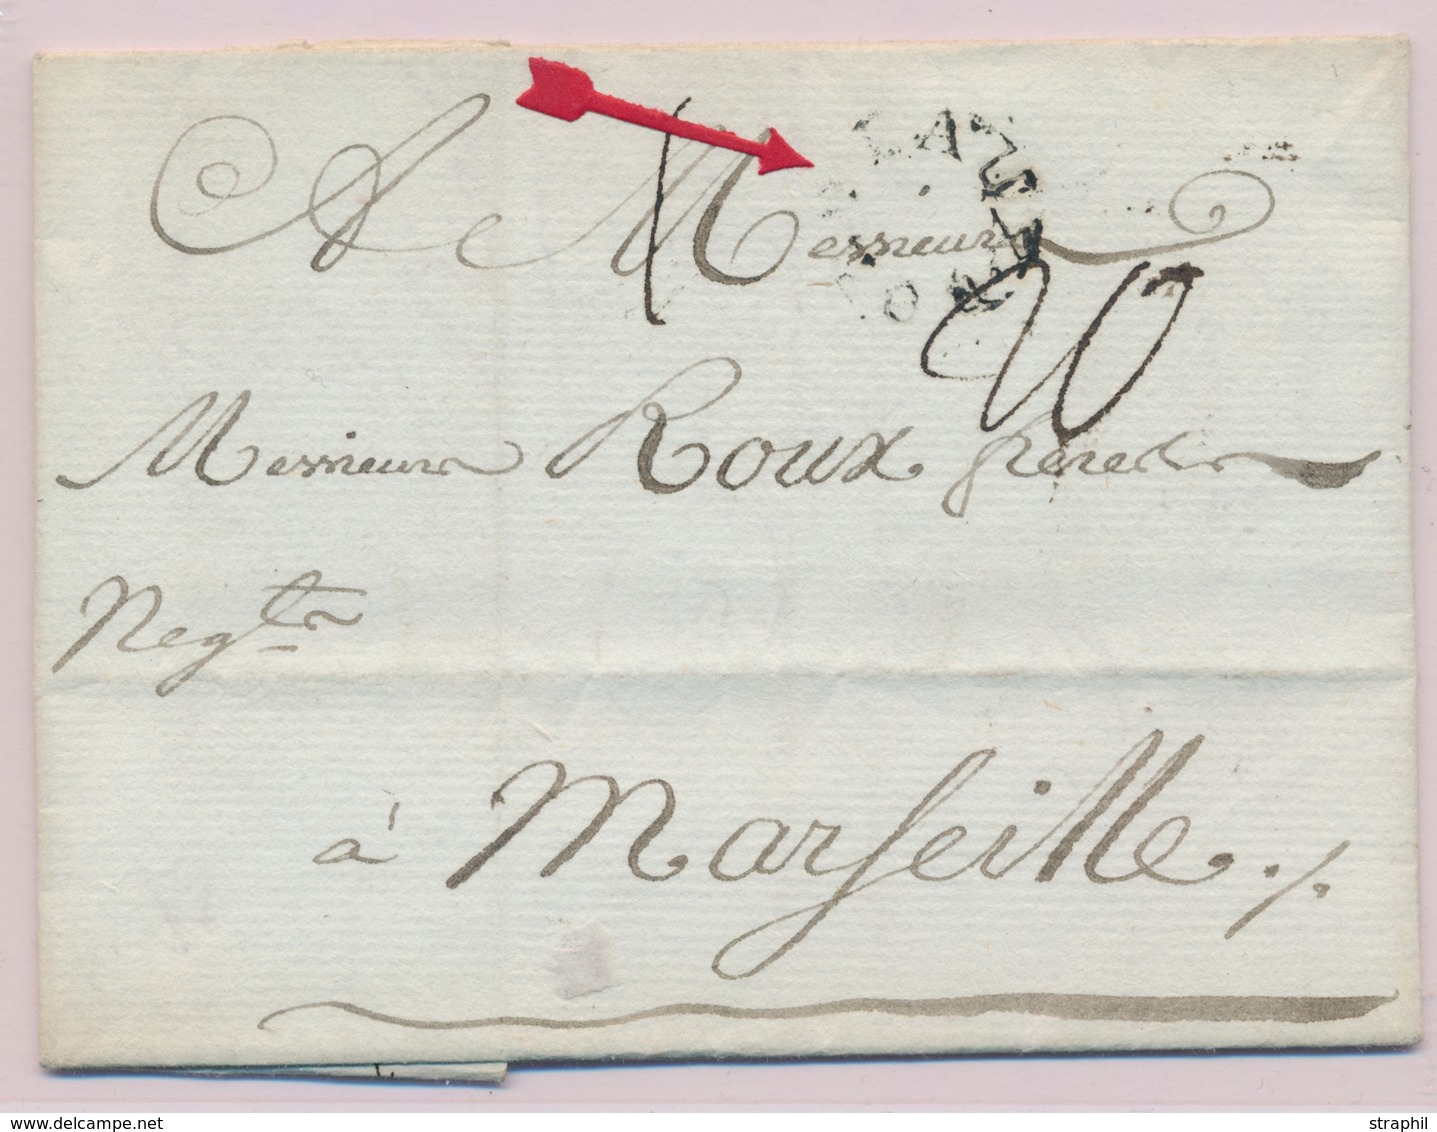 A Messieurs
Messieurs Roux freres
Negts
à Marseille ./.
20
www.delcampe.net
straphil